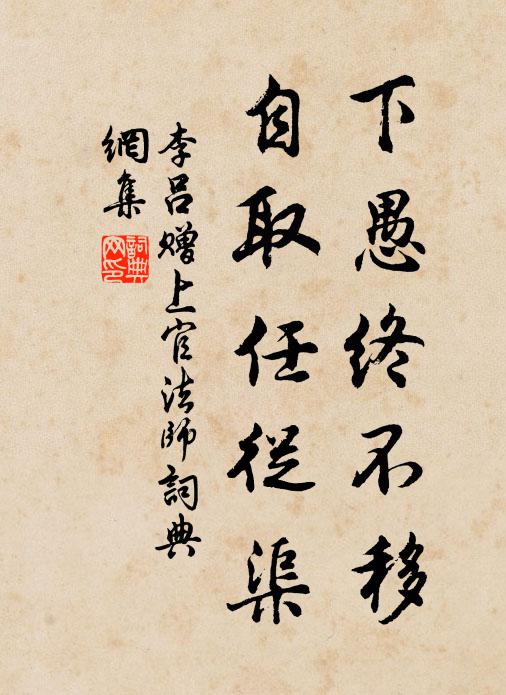 下愚終不移
自取任從渠
李吕贈上官法師詞典
網集
詞典
网印